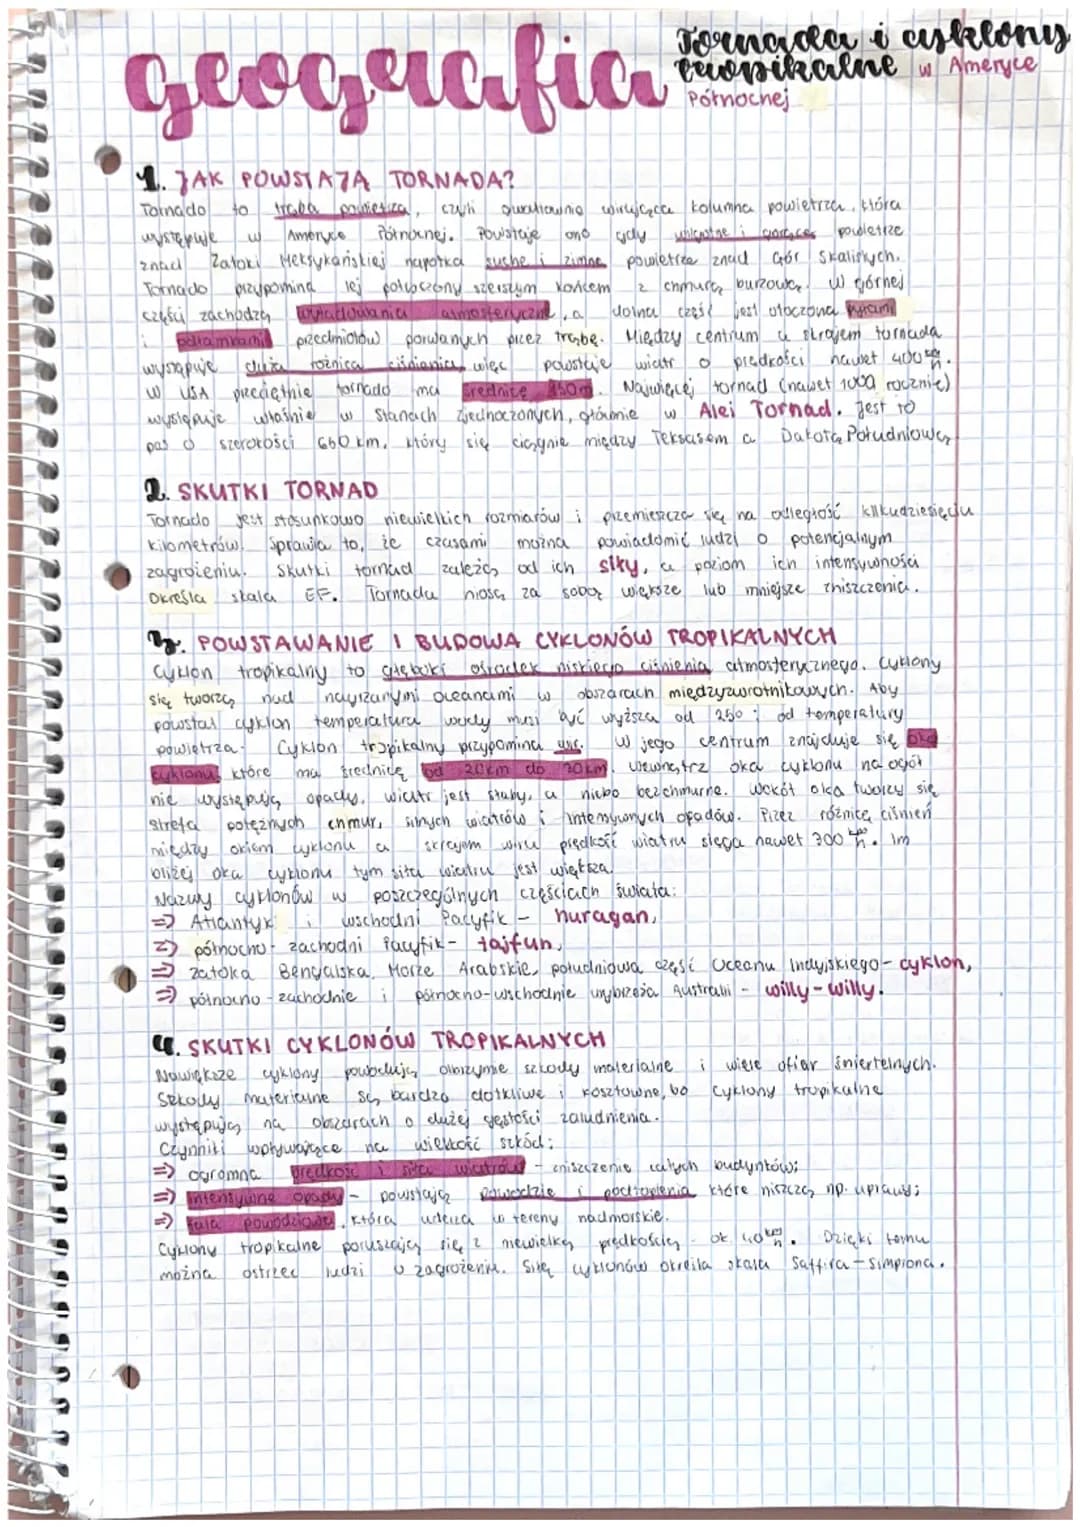 geografia
Tornada i cyklony
tropikalne w Ameryce
Północnej
1. JAK POWSTAJĄ TORNADA?
Tornado to trąba powietrza, czyli gwałtownie wirująca kolumna powietrza, która
występuje w Ameryce Północnej. Powstaje ono gdy wilgotne i gorące powietrze
znad Zatoki Meksykańskiej napotka suche i zimne powietrze znad Gór Skalistych.
Tornado przypomina lej połączony szerszym końcem z chmurą burzową. W górnej
części zachodzą wyładowania atmosferyczne, a dolna część jest otoczona pyłami
i odłamkami przedmiotów porwanych przez trąbę. Między centrum a skrajem tornada
występuje duża różnica ciśnienia, więc powstaje wiatr o prędkości nawet 400 km/h.
W USA przeciętnie tornado ma średnicę 150m. Najwięcej tornad (nawet 1000 rocznie)
występuje właśnie w Stanach Zjednoczonych, głównie w Alei Tornad. Jest to
pas o szerokości 650 km, który się ciągnie między Teksasem a Dakotą Południową.
2. SKUTKI TORNAD
Tornado jest stosunkowo niewielkich rozmiarów i przemieszcza się na odległość kilkudziesięciu
kilometrów. Sprawia to, że czasami można powiadomić ludzi o potencjalnym
zagrożeniu. Skutki tornad zależą od ich siły, a poziom ich intensywności
określa skala EF. Tornada niosą za sobą większe lub mniejsze zniszczenia.
3. POWSTAWANIE I BUDOWA CYKLONÓW TROPIKALNYCH
Cyklon tropikalny to głęboki ośrodek niskiego ciśnienia atmosferycznego. Cyklony
się tworzą nad nagrzanymi oceanami w obszarach międzyzwrotnikowych. Aby
powstał cyklon temperatura wody musi być wyższa od i od temperatury
powietrza. Cyklon tropikalny przypomina wir. W jego centrum znajduje się oko
cyklonu, które ma średnicę od 20km do 30km. Wewnątrz oka cyklonu na ogół
nie występują opady, wiatr jest słaby, a niebo bezchmurne. Wokół oka tworzy się
strefa potężnych chmur, silnych wiatrów i intensywnych opadów. Przez różnicę ciśnień
między okiem cyklonu a skrajem wiru prędkość wiatru sięga nawet 300 km/h. Im
bliżej oka cyklonu tym siła wiatru jest większa.
Nazwy cyklonów w poszczególnych częściach świata:
=> Atlantyk i wschodni Pacyfik - huragan,
=> północno-zachodni Pacyfik - tajfun,
=> zatoka Bengalska, Morze Arabskie, południowa część Oceanu Indyjskiego - cyklon,
=> północno-zachodnie i północno-wschodnie wybrzeża Australii - willy-willy.
4. SKUTKI CYKLONÓW TROPIKALNYCH
Największe cyklony powodują olbrzymie szkody materialne i wiele ofiar śmiertelnych.
Szkody materialne są bardzo dotkliwe i kosztowne, bo cyklony tropikalne
występują na obszarach o dużej gęstości zaludnienia.
Czynniki wpływające na wielkość szkód:
=> ogromna prędkość i siła wiatrów - zniszczenie całych budynków;
=> intensywne opady - powstają powodzie i podtopienia które niszczą np. uprawy;
=> fala powodziowa, która uderza w tereny nadmorskie.
Cyklony tropikalne poruszają się z niewielką prędkością - ok. 40 km/h. Dzięki temu
można ostrzec ludzi o zagrożeniu. Siłę cyklonów określa skala Saffira-Simpsona.